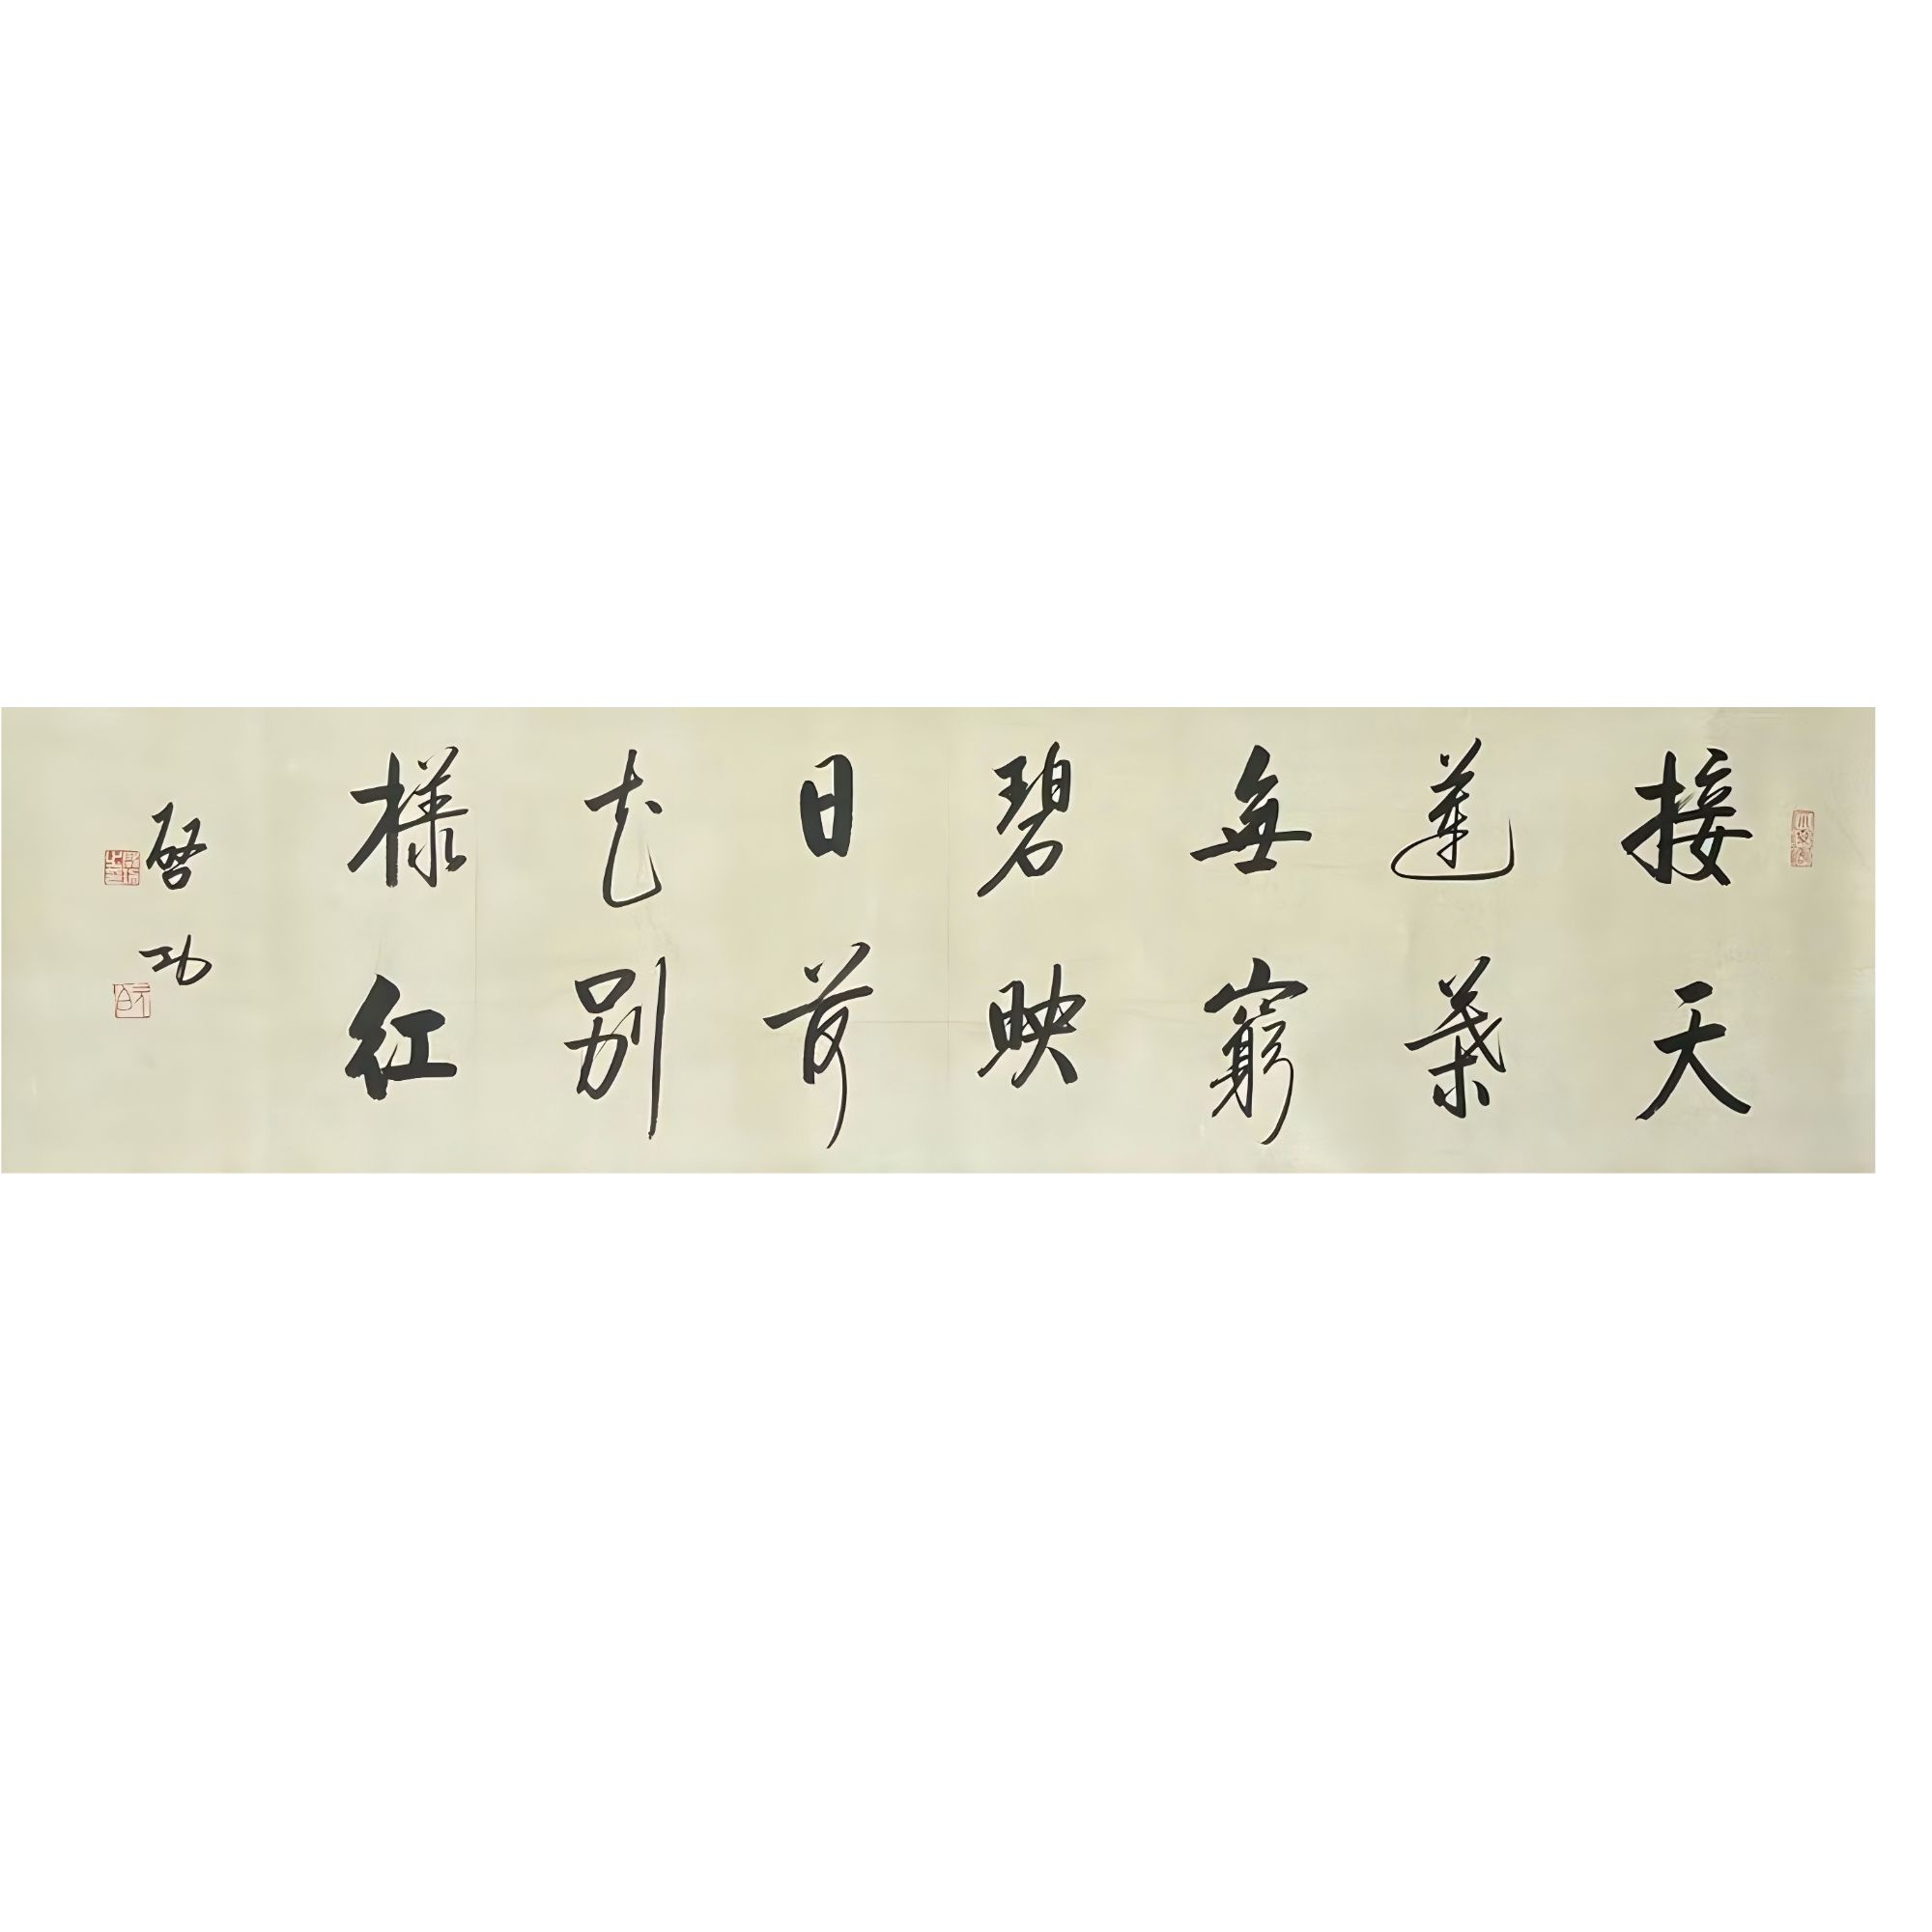 接天
蓮葉
無窮
碧映
日荷
花別
樣紅
啓功